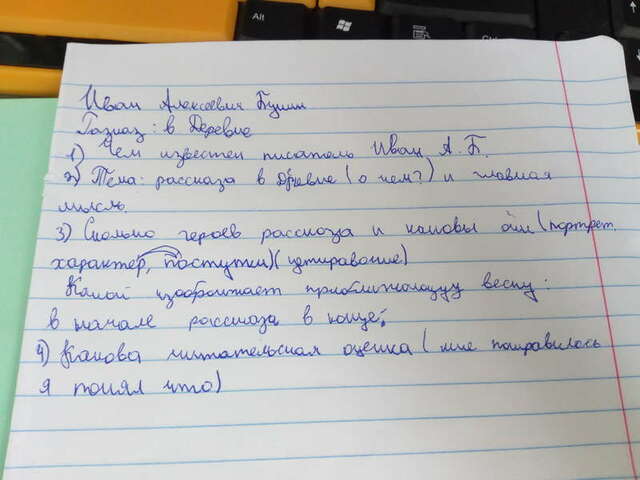 Alt
Ctrl
Иван Алексеевич Бунин
Разказ: в Деревне
1) Чем известен писатель Иван А. Б.
2) Тема: рассказа в Древне (о чем?) и главная
мысль.
3) Сколько героев рассказа и каковы они (портрет.
характер, поступки) (цитирование)
Какой изображает приближающуу весну:
в начале рассказа в конце;
4) Какова читательская оценка (мне понравилось
я понял что)